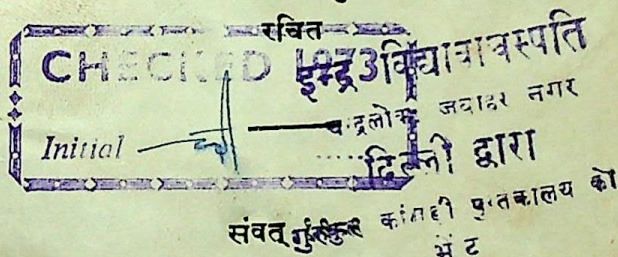 रचित
CHECKED 1973
इन्द्र विद्यावाचस्पति
चन्द्रलोक जवाहर नगर
Initial
दिल्ली द्वारा
संवत् गुरुकुल कांगड़ी पुस्तकालय को
भेंट